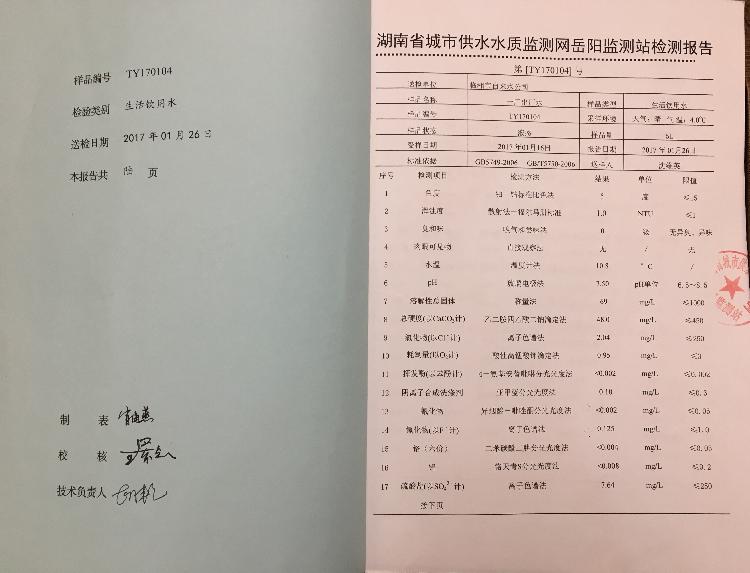 样品编号 TY170104
检验类别 生活饮用水
送检日期 2017 年 01 月 26 日
本报告共 陆 页
制 表
校 核
技术负责人
湖南省城市供水水质监测网岳阳监测站检测报告
第 [TY170104] 号
送检单位 自来水公司
样品名称 样品类型 生活饮用水
样品编号 TY170104 采样环境 天气：晴 气温：4.0℃
样品状态 液态 样品量 5L
受样日期 2017 年01月16日 报告日期 2017 年 01月26日
标准依据 GB5749-2006 GB/T5750-2006 送样人
序号 检测项目 检测方法 结果 单位 限值
1 色度 铂－钴标准比色法 度 ≤15
2 浑浊度 散射法－福尔马肼标准 1.0 NTU ≤1
3 臭和味 嗅气和尝味法 0 级 无异臭、异味
4 肉眼可见物 直接观察法 无 / 无
5 水温 温度计法 10.8 °C /
6 pH 玻璃电极法 7.50 pH单位 6.5~8.5
7 溶解性总固体 称量法 69 mg/L ≤1000
8 总硬度(以CaCO3计) 乙二胺四乙酸二钠滴定法 48.0 mg/L ≤450
9 氯化物(以Cl⁻计) 离子色谱法 2.04 mg/L ≤250
10 耗氧量(以O2计) 酸性高锰酸钾滴定法 0.95 mg/L ≤3
11 挥发酚(以苯酚计) 4-氨基安替吡啉分光光度法 <0.002 mg/L ≤0.002
12 阴离子合成洗涤剂 亚甲蓝分光光度法 0.10 mg/L ≤0.3
13 氰化物 异烟酸－吡唑酮分光光度法 <0.002 mg/L ≤0.05
14 氟化物(以F⁻计) 离子色谱法 0.125 mg/L ≤1.0
15 铬（六价） 二苯碳酰二肼分光光度法 <0.004 mg/L ≤0.05
16 铝 铬天青S分光光度法 <0.008 mg/L ≤0.2
17 硫酸盐(以SO4²⁻计) 离子色谱法 7.64 mg/L ≤250
接下页